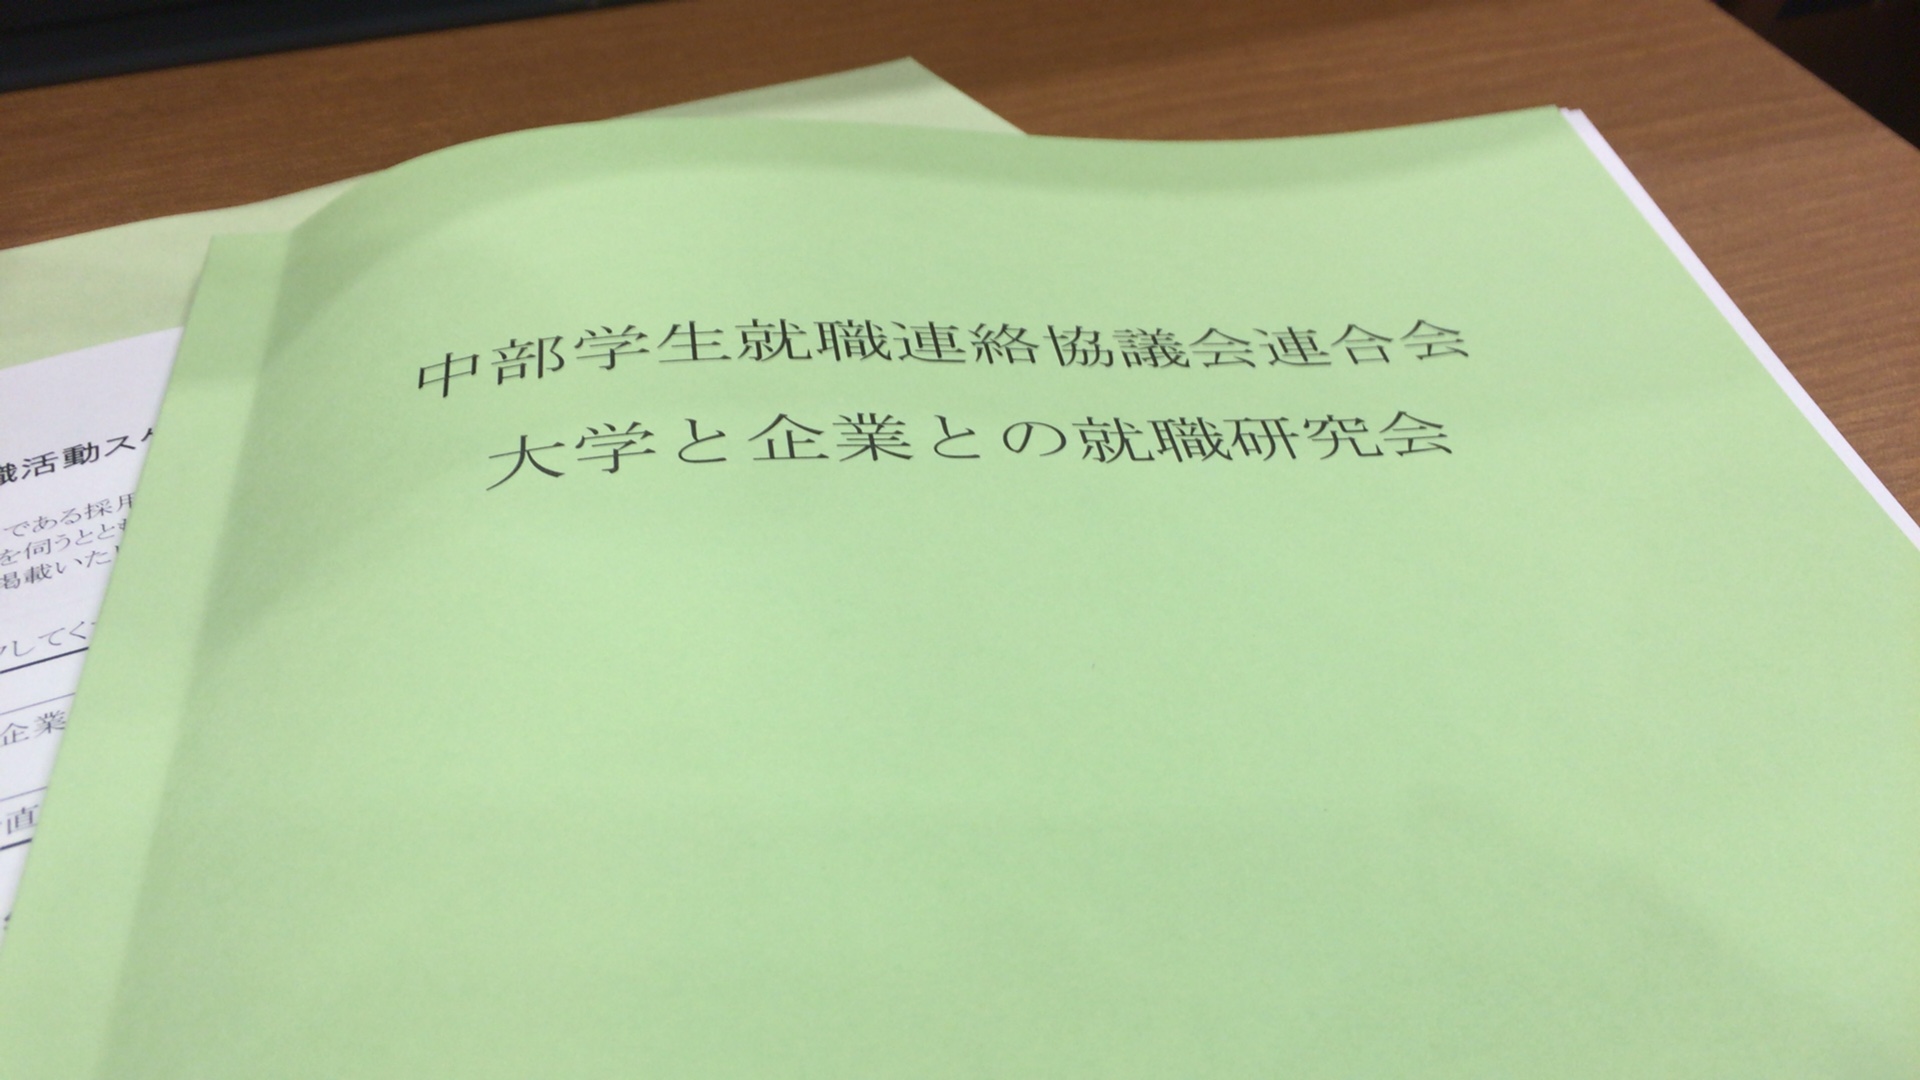 中部学生就職連絡協議会連合会
大学と企業との就職研究会
職活動ス
である採用
を伺うととも
掲載いた
してく
企業
直